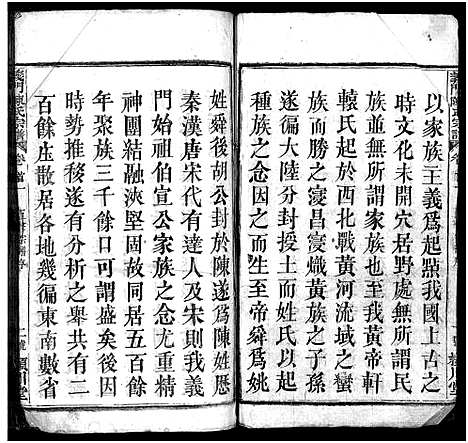 以家族主義爲起點我國上古之
時文化未開穴居野處無所謂民
族也無所謂家族也一變而至軒
轅氏起西北戰黃河流域之蠻
族而勝之寖昌寖熾黃族之子孫
遂徧大陸分封授土而姓氏以成
種族之念因之而生至帝舜爲姚
姓舜後胡公封於陳遂爲陳姓歷
秦漢唐代有達人及宋則我義
門始祖伯宣公家族之念更具精
神團結融浹堅固故同居五百餘
年聚族三千餘口可謂盛矣後因
時勢推移遂有分析之舉共有二
百餘庄散居各地幾徧東南數省
義門陳氏宗譜
卷首
潁川堂